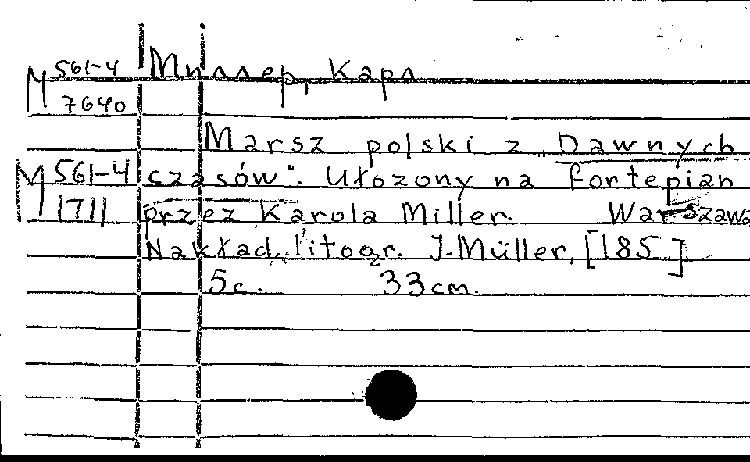 М 561-4 Миллер, Карл
7640
Marsz polski z „Dawnych
М 561-4 czasów". Ułozony na fortepian
1711 przez Karola Miller. Warszawa
Nakład litogr. J. Müller, [185 ]
5 с. 33 cm.